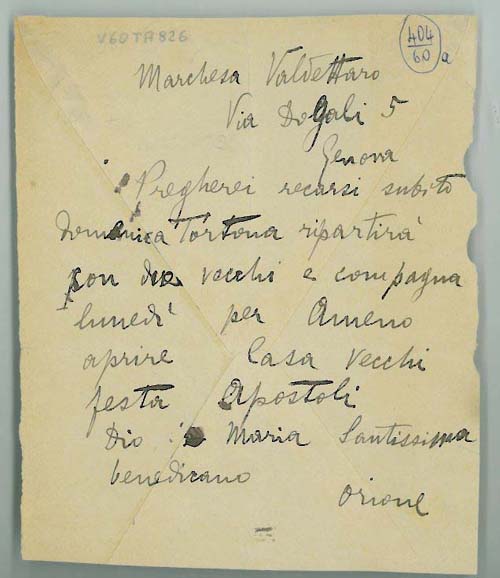 V60TA826
404
60 a
Marchesa Valdettaro
Via Dogali 5
Genova
Pregherei recarsi subito
domenica Tortona ripartirà
con due vecchi e compagna
lunedì per Ameno
aprire Casa Vecchi
festa Apostoli
Dio e Maria Santissima
benedicano
Orione